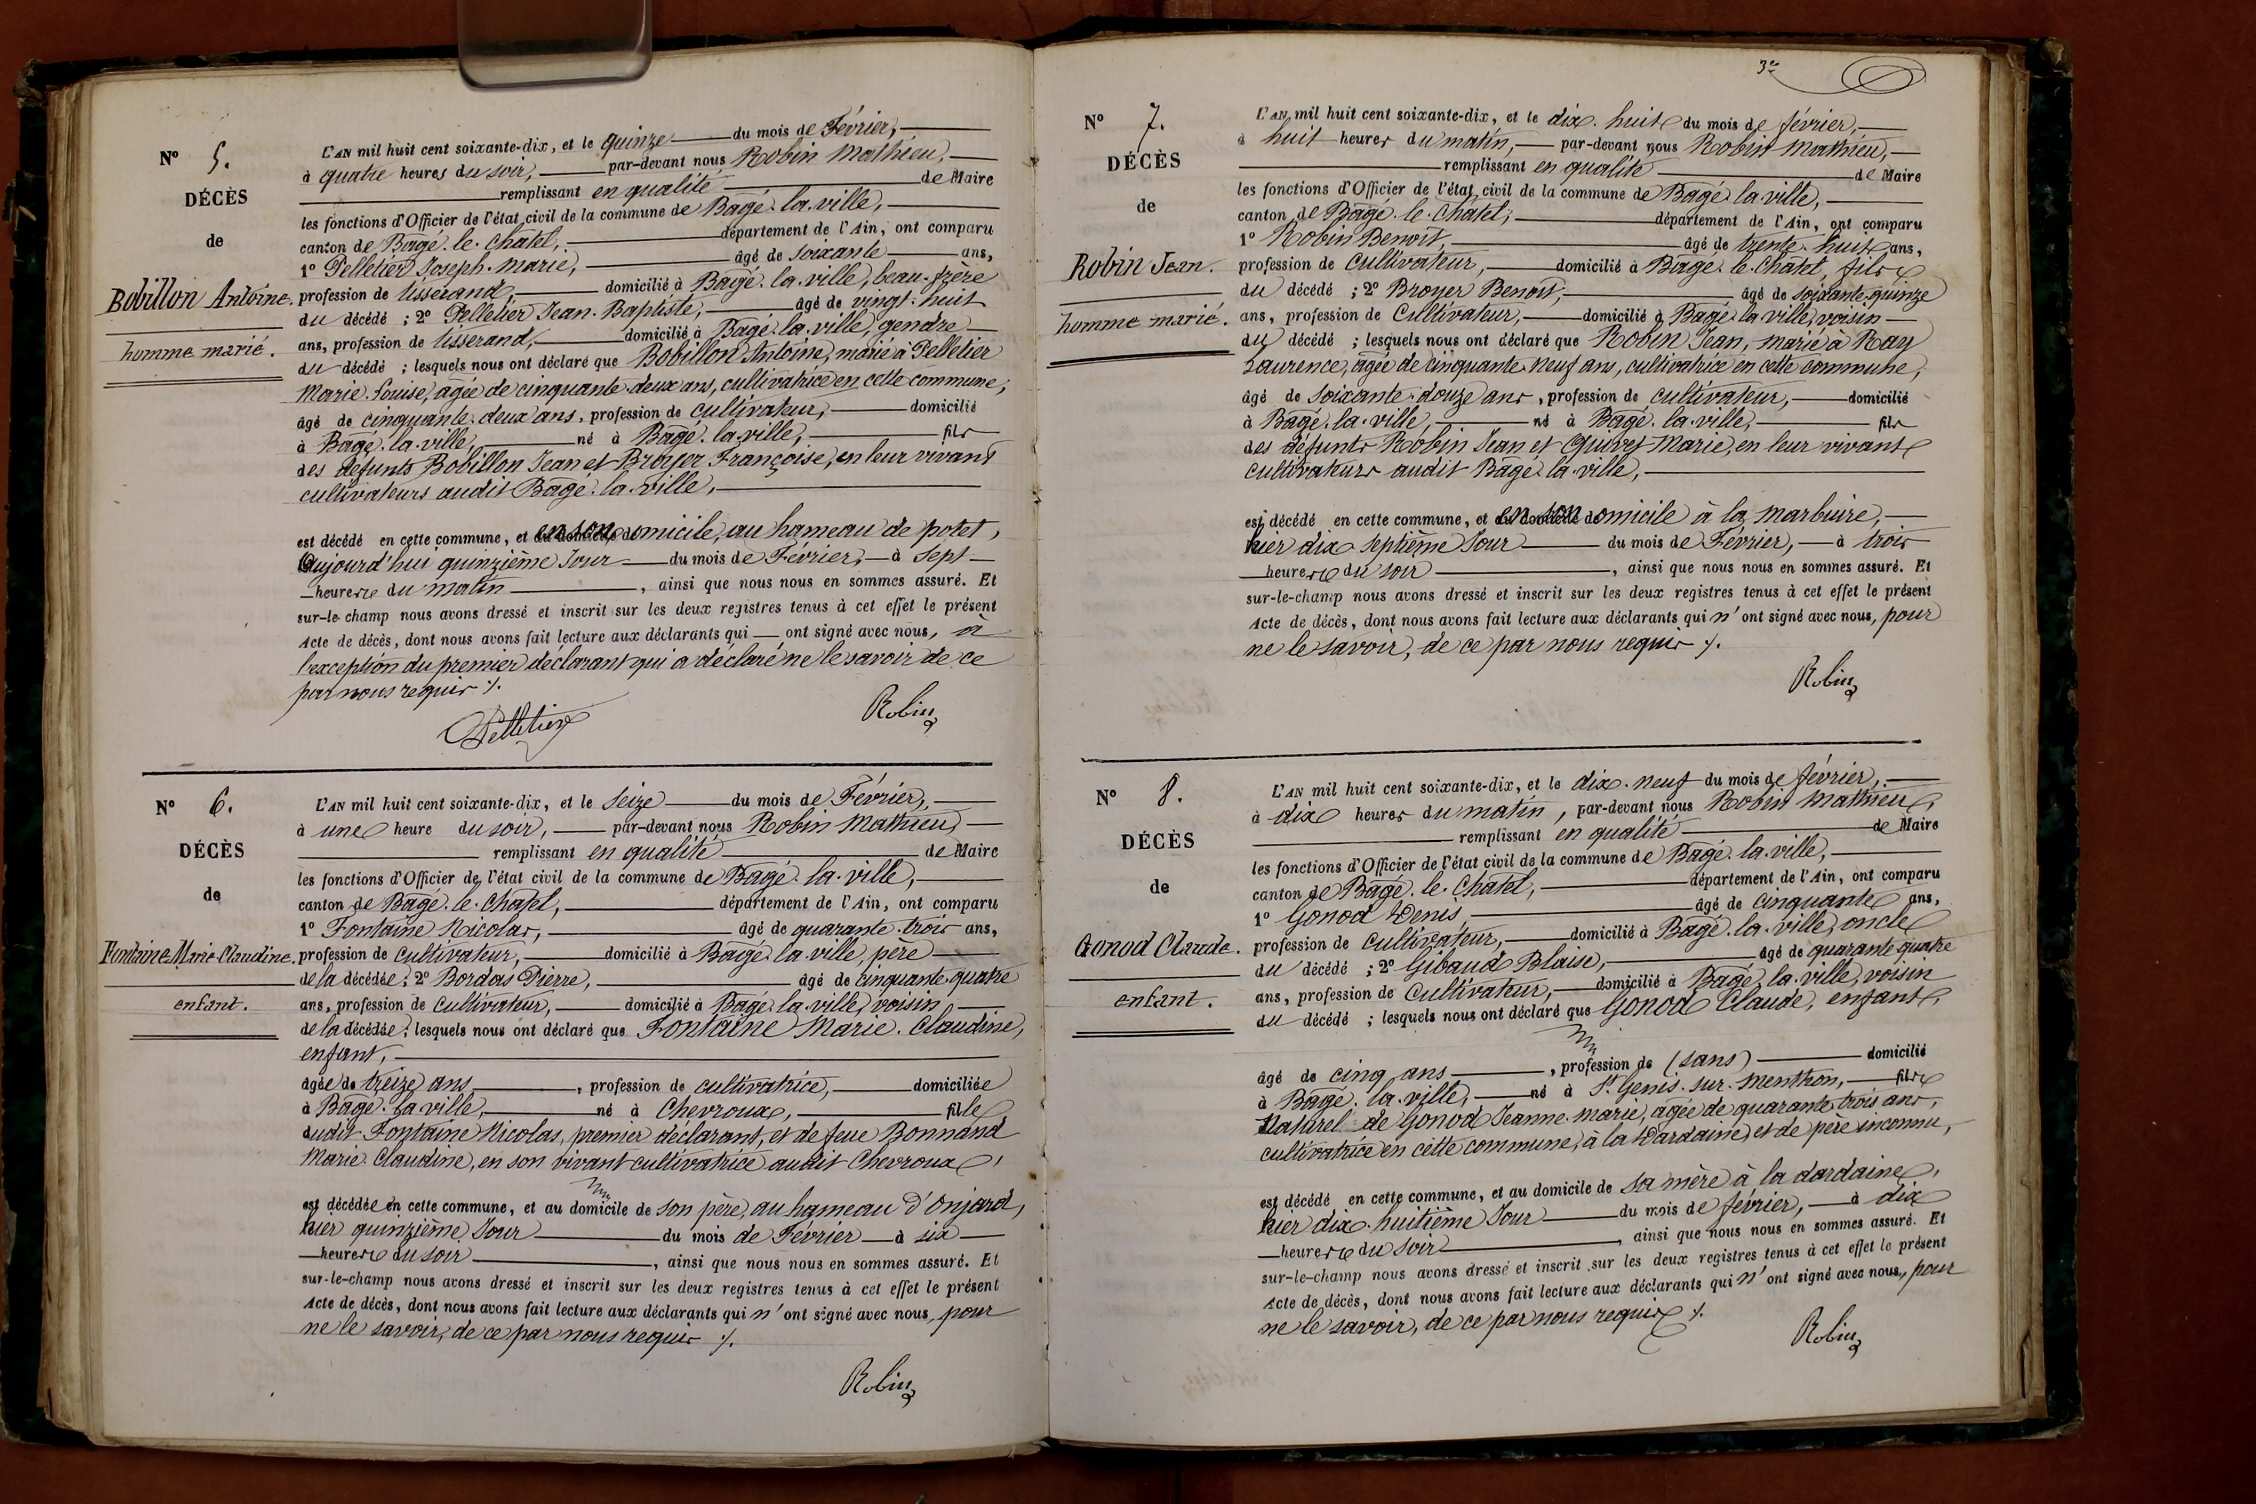 Nº 5.
DÉCÈS
de
Bobillon Antoine.
homme marié.
L'AN mil huit cent soixante-dix, et le quinze du mois de Février,
à quatre heures du soir, par-devant nous Robin Mathieu,
remplissant en qualité de Maire
les fonctions d'Officier de l'état civil de la commune de Bagé-la-ville,
canton de Bagé-le-Châtel, département de l'Ain, ont comparu
1º Pelletier Joseph-Marie, âgé de soixante ans,
profession de tisserand domicilié à Bagé-la-ville, beau-frère
du décédé ; 2º Pelletier Jean-Baptiste, âgé de vingt-huit
ans, profession de tisserand, domicilié à Bagé-la-ville, gendre
du décédé ; lesquels nous ont déclaré que Bobillon Antoine, marié à Pelletier
Marie-Louise, âgée de cinquante-deux ans, cultivatrice en cette commune,
âgé de cinquante-deux ans, profession de cultivateur, domicilié
à Bagé-la-ville, né à Bagé-la-ville, fils
des défunts Bobillon Jean et Broyer Françoise, en leur vivant
cultivateurs audit Bagé-la-ville,
est décédé en cette commune, et en son domicile, au hameau de potet,
Aujourd'hui quinzième Jour du mois de Février, à sept
heures du matin, ainsi que nous nous en sommes assuré. Et
sur-le-champ nous avons dressé et inscrit sur les deux registres tenus à cet effet le présent
Acte de décès, dont nous avons fait lecture aux déclarants qui ont signé avec nous, à
l'exception du premier déclarant qui a déclaré ne le savoir de ce
par nous requis ./.
Pelletier
Robin
Nº 6.
DÉCÈS
de
Fontaine Marie-Claudine.
enfant.
L'AN mil huit cent soixante-dix, et le seize du mois de Février,
à une heure du soir, par-devant nous Robin Mathieu,
remplissant en qualité de Maire
les fonctions d'Officier de l'état civil de la commune de Bagé-la-ville,
canton de Bagé-le-Châtel, département de l'Ain, ont comparu
1º Fontaine Nicolas, âgé de quarante-trois ans,
profession de cultivateur, domicilié à Bagé-la-ville, père
de la décédée ; 2º Bordois Pierre, âgé de cinquante-quatre
ans, profession de cultivateur, domicilié à Bagé-la-ville, voisin
de la décédée ; lesquels nous ont déclaré que Fontaine Marie-Claudine,
enfant,
âgée de treize ans, profession de cultivatrice, domiciliée
à Bagé-la-ville, né à Chevroux, fille
dudit Fontaine Nicolas, premier déclarant, et de feue Bonnand
Marie-Claudine, en son vivant cultivatrice audit Chevroux,
est décédée en cette commune, et au domicile de son père, au hameau d'Onjard,
hier quinzième Jour du mois de Février à six
heures du soir, ainsi que nous nous en sommes assuré. Et
sur-le-champ nous avons dressé et inscrit sur les deux registres tenus à cet effet le présent
Acte de décès, dont nous avons fait lecture aux déclarants qui n'ont signé avec nous, pour
ne le savoir, de ce par nous requis ./.
Robin
3e
Nº 7.
DÉCÈS
de
Robin Jean.
homme marié.
L'AN mil huit cent soixante-dix, et le dix-huit du mois de février,
à huit heures du matin, par-devant nous Robin Mathieu,
remplissant en qualité de Maire
les fonctions d'Officier de l'état civil de la commune de Bagé-la-ville,
canton de Bagé-le-Châtel, département de l'Ain, ont comparu
1º Robin Benoit, âgé de trente-huit ans,
profession de cultivateur, domicilié à Bagé-le-Châtel, fils
du décédé ; 2º Broyer Benoit, âgé de soixante-quinze
ans, profession de cultivateur, domicilié à Bagé-la-ville, voisin
du décédé ; lesquels nous ont déclaré que Robin Jean, marié à Ray
Laurence, âgée de cinquante-neuf ans, cultivatrice en cette commune,
âgé de soixante-douze ans, profession de cultivateur, domicilié
à Bagé-la-ville, né à Bagé-la-ville, fils
des défunts Robin Jean et Guivet Marie, en leur vivant
cultivateurs audit Bagé-la-ville,
est décédé en cette commune, et en son domicile à la Marbuire,
hier dix-septième Jour du mois de Février, à trois
heures du soir, ainsi que nous nous en sommes assuré. Et
sur-le-champ nous avons dressé et inscrit sur les deux registres tenus à cet effet le présent
Acte de décès, dont nous avons fait lecture aux déclarants qui n'ont signé avec nous, pour
ne le savoir, de ce par nous requis ./.
Robin
Nº 8.
DÉCÈS
de
Gonod Claude.
enfant.
L'AN mil huit cent soixante-dix, et le dix-neuf du mois de février,
à dix heures du matin, par-devant nous Robin Mathieu,
remplissant en qualité de Maire
les fonctions d'Officier de l'état civil de la commune de Bagé-la-ville,
canton de Bagé-le-Châtel, département de l'Ain, ont comparu
1º Gonod Denis, âgé de cinquante ans,
profession de cultivateur, domicilié à Bagé-la-ville, oncle
du décédé ; 2º Gibaud Blaise, âgé de quarante-quatre
ans, profession de cultivateur, domicilié à Bagé-la-ville, voisin
du décédé ; lesquels nous ont déclaré que Gonod Claude, enfant,
âgé de cinq ans, profession de (sans) domicilié
à Bagé-la-ville, né à St Genis-sur-Menthon, fils
Naturel de Gonod Jeanne-Marie, âgée de quarante-trois ans,
cultivatrice en cette commune, à la Dardaine, et de père inconnu,
est décédé en cette commune, et au domicile de sa mère à la dardaine,
hier dix-huitième Jour du mois de février, à dix
heures du soir, ainsi que nous nous en sommes assuré. Et
sur-le-champ nous avons dressé et inscrit sur les deux registres tenus à cet effet le présent
Acte de décès, dont nous avons fait lecture aux déclarants qui n'ont signé avec nous, pour
ne le savoir, de ce par nous requis ./.
Robin